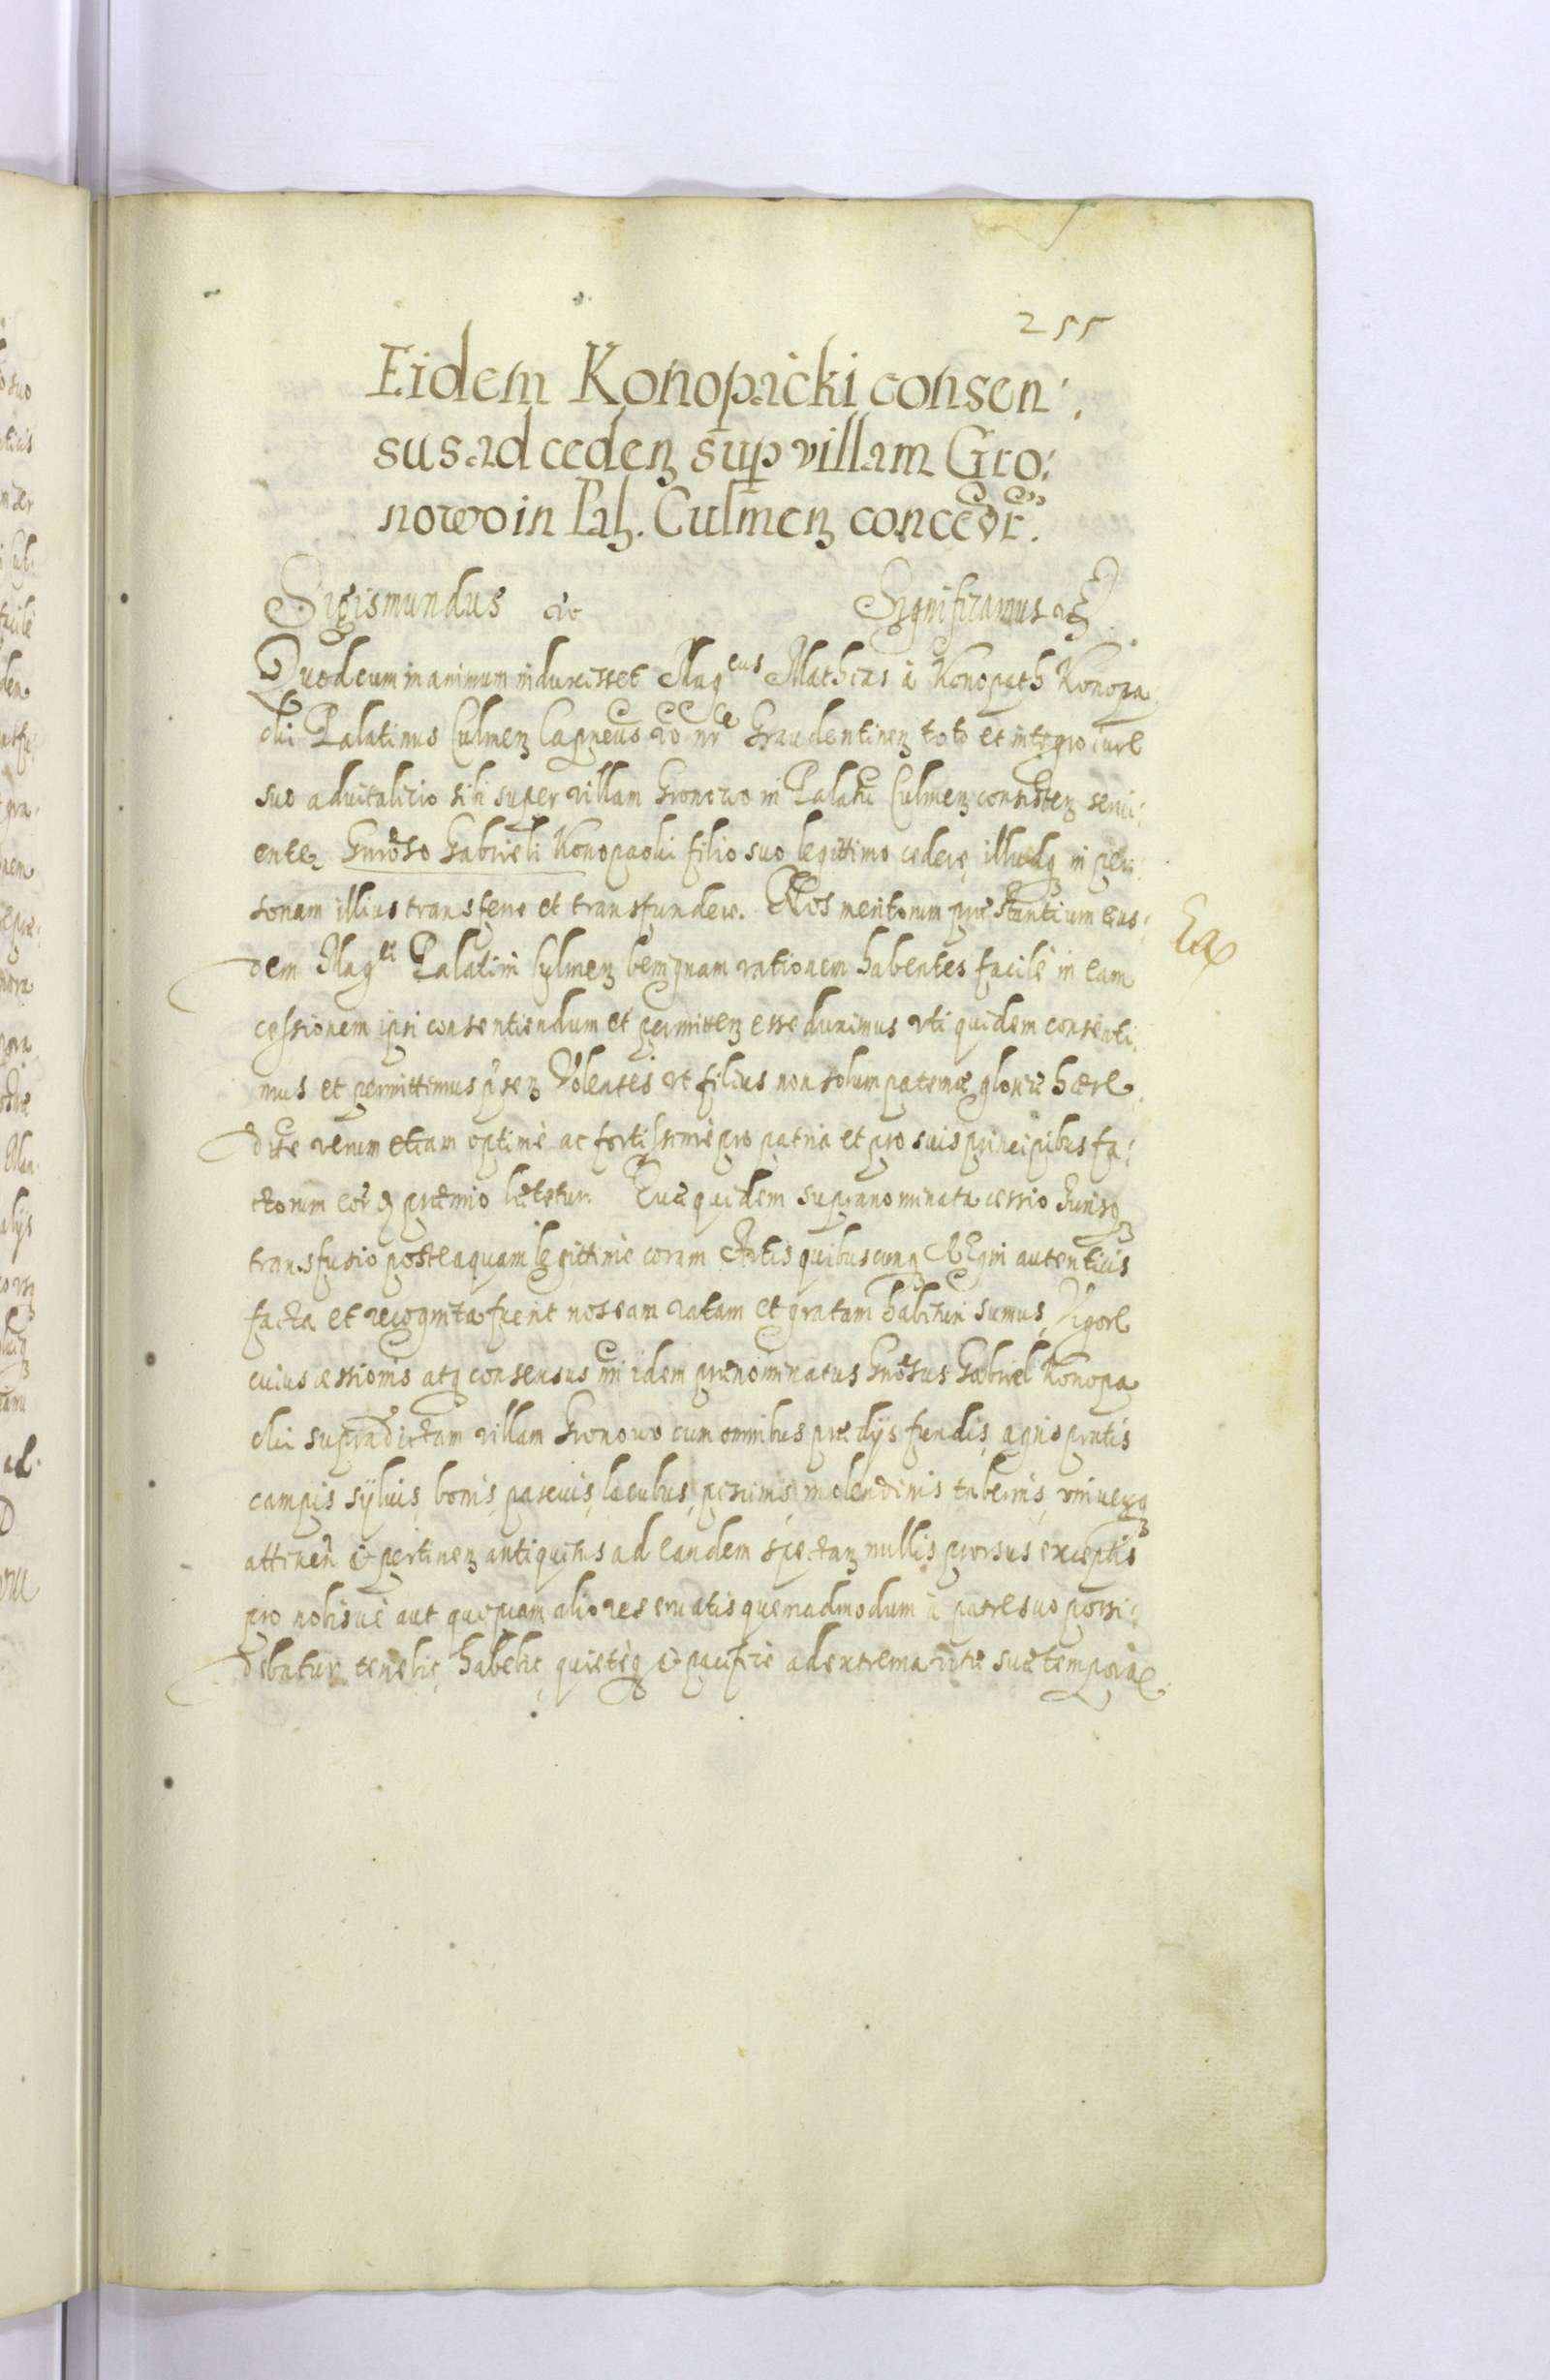 255
Eidem Konopacki consen:
sus ad cedenꝫ sup villam Gro:
nowo in Palꝫ. Culmenꝫ concedr.
Sigismundus etc Significamus etꝫ
Quod cum in animum induxisset Magcus Mathias à Konopath Konopa
cki Palatinus Culmenꝫ Capneus ac nr Graudentinenꝫ toto et integro iure
suo aduitalitio sibi super villam Gronowo in Palatu Culmenꝫ consistenꝫ serui:
enteꝫ Gnroso Gabrieli Konopacki filio suo legittimo cedere, illudqꝫ in per:
sonam illius transferre et transfundere. Nos meritorum præstantium eius:
dem Magci Palatini Culmenꝫ benignam rationem habentes facile in eam
cessionem ipsi consentiendum et permittenꝫ esse duximus vti quidem consenti:
mus et permittimus pñsenꝫ Volentes vt filius non solum paternæ gloriæ hære
dite verum etiam optimè ac fortissimè pro patria et pro suis principibus fa:
ctorum præmio lætetur. Quæ quidem supranominata cessio Iurisqꝫ
transfusio posteaquam legittimè coram Actis quibuscunqꝫ Regni autenticis
facta et recognita fuerit nos eam ratam et gratam habituri sumus, Vigore
cuius cessionis atqꝫ consensus nri idem prænominatus Gnrosus Gabriel Konopa
cki supradictam villam Gronowo cum omnibus prædijs fundis, agris pratis
campis syluis, boris, pascuis, lacubus, piscinis, molendinis tabernis, vniuersqꝫ
attinen̄ & pertinenꝫ antiquitus ad eandem spectanꝫ nullis prorsus exceptis
pro nobisuè aut quopiam alio reseruatis quemadmodum à patre suo possi:
debatur tenebit, habebit, quietèqꝫ & pacificè ad extrema vitæ suæ tempora
Ea